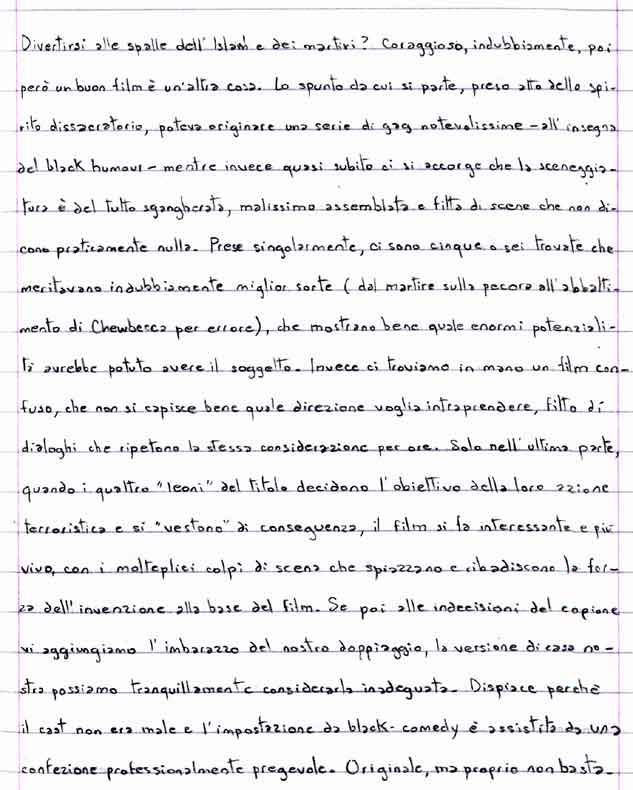 Divertirsi alle spalle dell'Islam e dei martiri? Coraggioso, indubbiamente, poi
però un buon film è un'altra cosa. Lo spunto da cui si parte, preso atto dello spi-
rito dissacratorio, poteva originare una serie di gag notevolissime - all'insegna
del black humour - mentre invece quasi subito ci si accorge che la sceneggia-
tura è del tutto sgangherata, malissimo assemblata e fitta di scene che non di-
cono praticamente nulla. Prese singolarmente, ci sono cinque o sei trovate che
meritavano indubbiamente miglior sorte (dal martire sulla pecora all'abbatti-
mento di Chewbecca per errore), che mostrano bene quale enormi potenziali-
tà avrebbe potuto avere il soggetto. Invece ci troviamo in mano un film con-
fuso, che non si capisce bene quale direzione voglia intraprendere, fitto di
dialoghi che ripetono la stessa considerazione per ore. Solo nell'ultima parte,
quando i quattro "leoni" del titolo decidono l'obiettivo della loro azione
terroristica e si "vestono" di conseguenza, il film si fa interessante e più
vivo, con i molteplici colpi di scena che spiazzano e ribadiscono la for-
za dell'invenzione alla base del film. Se poi alle indecisioni del copione
vi aggiungiamo l'imbarazzo del nostro doppiaggio, la versione di casa no-
stra possiamo tranquillamente considerarla inadeguata. Dispiace perchè
il cast non era male e l'impostazione da black-comedy è assistita da una
confezione professionalmente pregevole. Originale, ma proprio non basta.